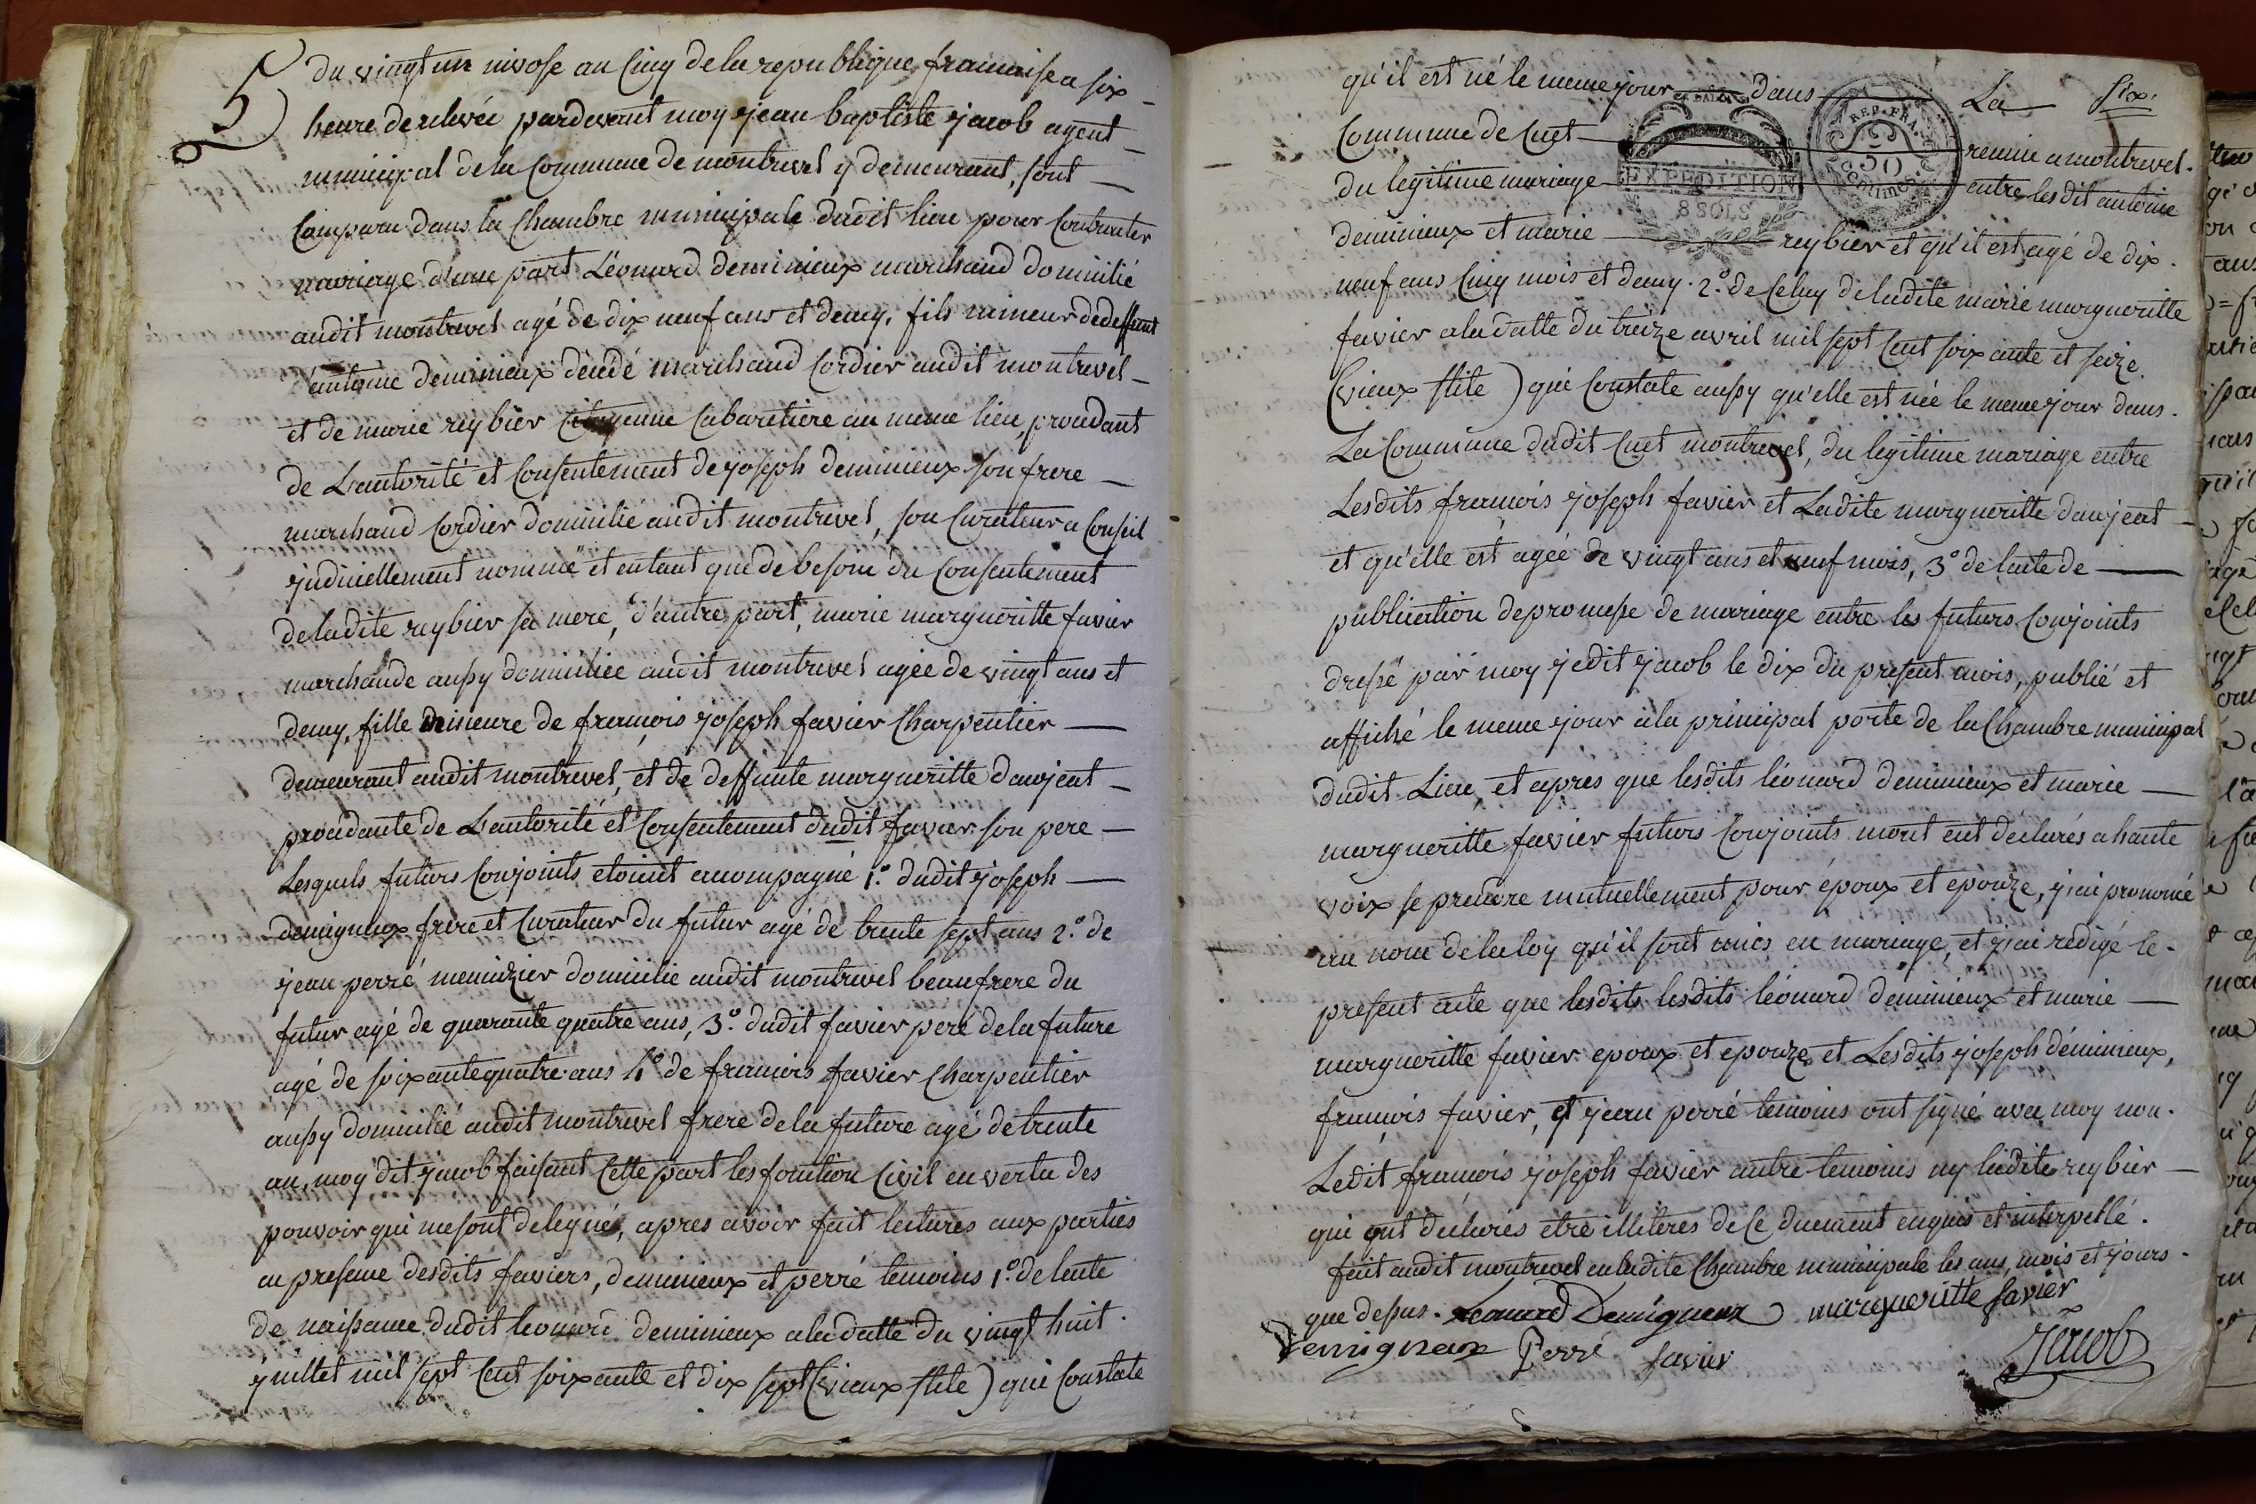 5 du vingt un nivose an Cinq de la republique francaise a six
heure de relevée pardevant moy jean baptiste jacob agent
municipal de la Commune de montrevel y demeurant, sont
Comparu dans la Chambre municipale dudit lieu pour Contracter
mariage d'une part Léonard deminieux marchand domicilié
audit montrevel agé de dix neuf ans et demy, fils mineur de deffunt
d'antoine deminieux décédé marchand Cordier audit montrevel
et de marie reybier Citoyenne Cabaretiere au meme lieu, procedant
de L'autorité et Consentement de joseph deminieux son frere
marchand Cordier domicilié audit montrevel, son Curateur a Conseil
judiciellement nommé et entant que de besoin du Consentement
de ladite reybier sa mere, d'autre part, marie margueritte favier
marchande aussy domiciliée audit montrevel agée de vingt ans et
demy, fille mineure de francois joseph favier Charpentier
demeurant audit montrevel, et de deffunte margueritte daujeat
procedante de L'autorité et Consentement dudit favier son pere
Lesquels futurs Conjoints etoint acompagné 1.º dudit joseph
demigneux frere et Curateur du futur agé de trente sept ans 2.º de
jean perré menuizier domicilié audit montrevel beaufrere du
futur agé de quarante quatre ans, 3.º dudit favier pere de la future
agé de soixante quatre ans 4º de francois favier Charpentier
aussy domicilié audit montrevel frere de la future agé de trente
an, moy dit jacob faisant Cette part les fonction Civil en vertu des
pouvoir qui me sont delegué, apres avoir fait lectures aux parties
en presence desdits faviers, deminieux et perré temoins 1.º de lacte
de naissance dudit leonard deminieux a la datte du vingt huit
juillet mil sept Cent soixante et dix sept (vieux stile) qui Constate
qu'il est né le meme jour dans La Six.
Commune de Cuet reunie a montrevel.
REP. FRA.
50
Centimes
EXPEDITION
8 SOLS
du legitime mariage entre lesdit antoine
deminieux et marie reybier et qu'il est agé de dix
neuf ans Cinq mois et demy. 2.º de Celuy de ladite marie margueritte
favier a la datte du treize avril mil sept Cent soixante et seize
(vieux stile) qui Constate aussy qu'elle est née le meme jour dans
La Commune dudit Cuet montrevel, du legitime mariage entre
Lesdits francois joseph favier et Ladite margueritte daujeat
et qu'elle est agée de vingt ans et neuf mois, 3º de lacte de
publication de promesse de mariage entre les futurs Conjoints
dressé par moy jedit jacob le dix du present mois, publié et
affiché le meme jour a la principal porte de la Chambre municipal
dudit Lieu, et apres que lesdits léonard deminieux et marie
margueritte favier futurs Conjoints mont eut déclarés a haute
voix se prendre mutuellement pour époux et epouze, j'ai prononcé
au nom de la loy qu'il sont unies en mariage, et j'ai redigé le
present acte que lesdits lesdits léonard deminieux et marie
margueritte favier epoux et epouze et Lesdits joseph déminieux,
francois favier, et jean perré temoins ont signé avec moy non
Ledit francois joseph favier autre temoins ny ladite reybier
qui ont declarés etre illiteres de Ce duement enquis et interpellé.
fait audit montrevel en ladite Chambre municipale les ans, mois et jours
que dessus. Leonard Demigneux margueritte favier
Demigneux Perré favier Jacob